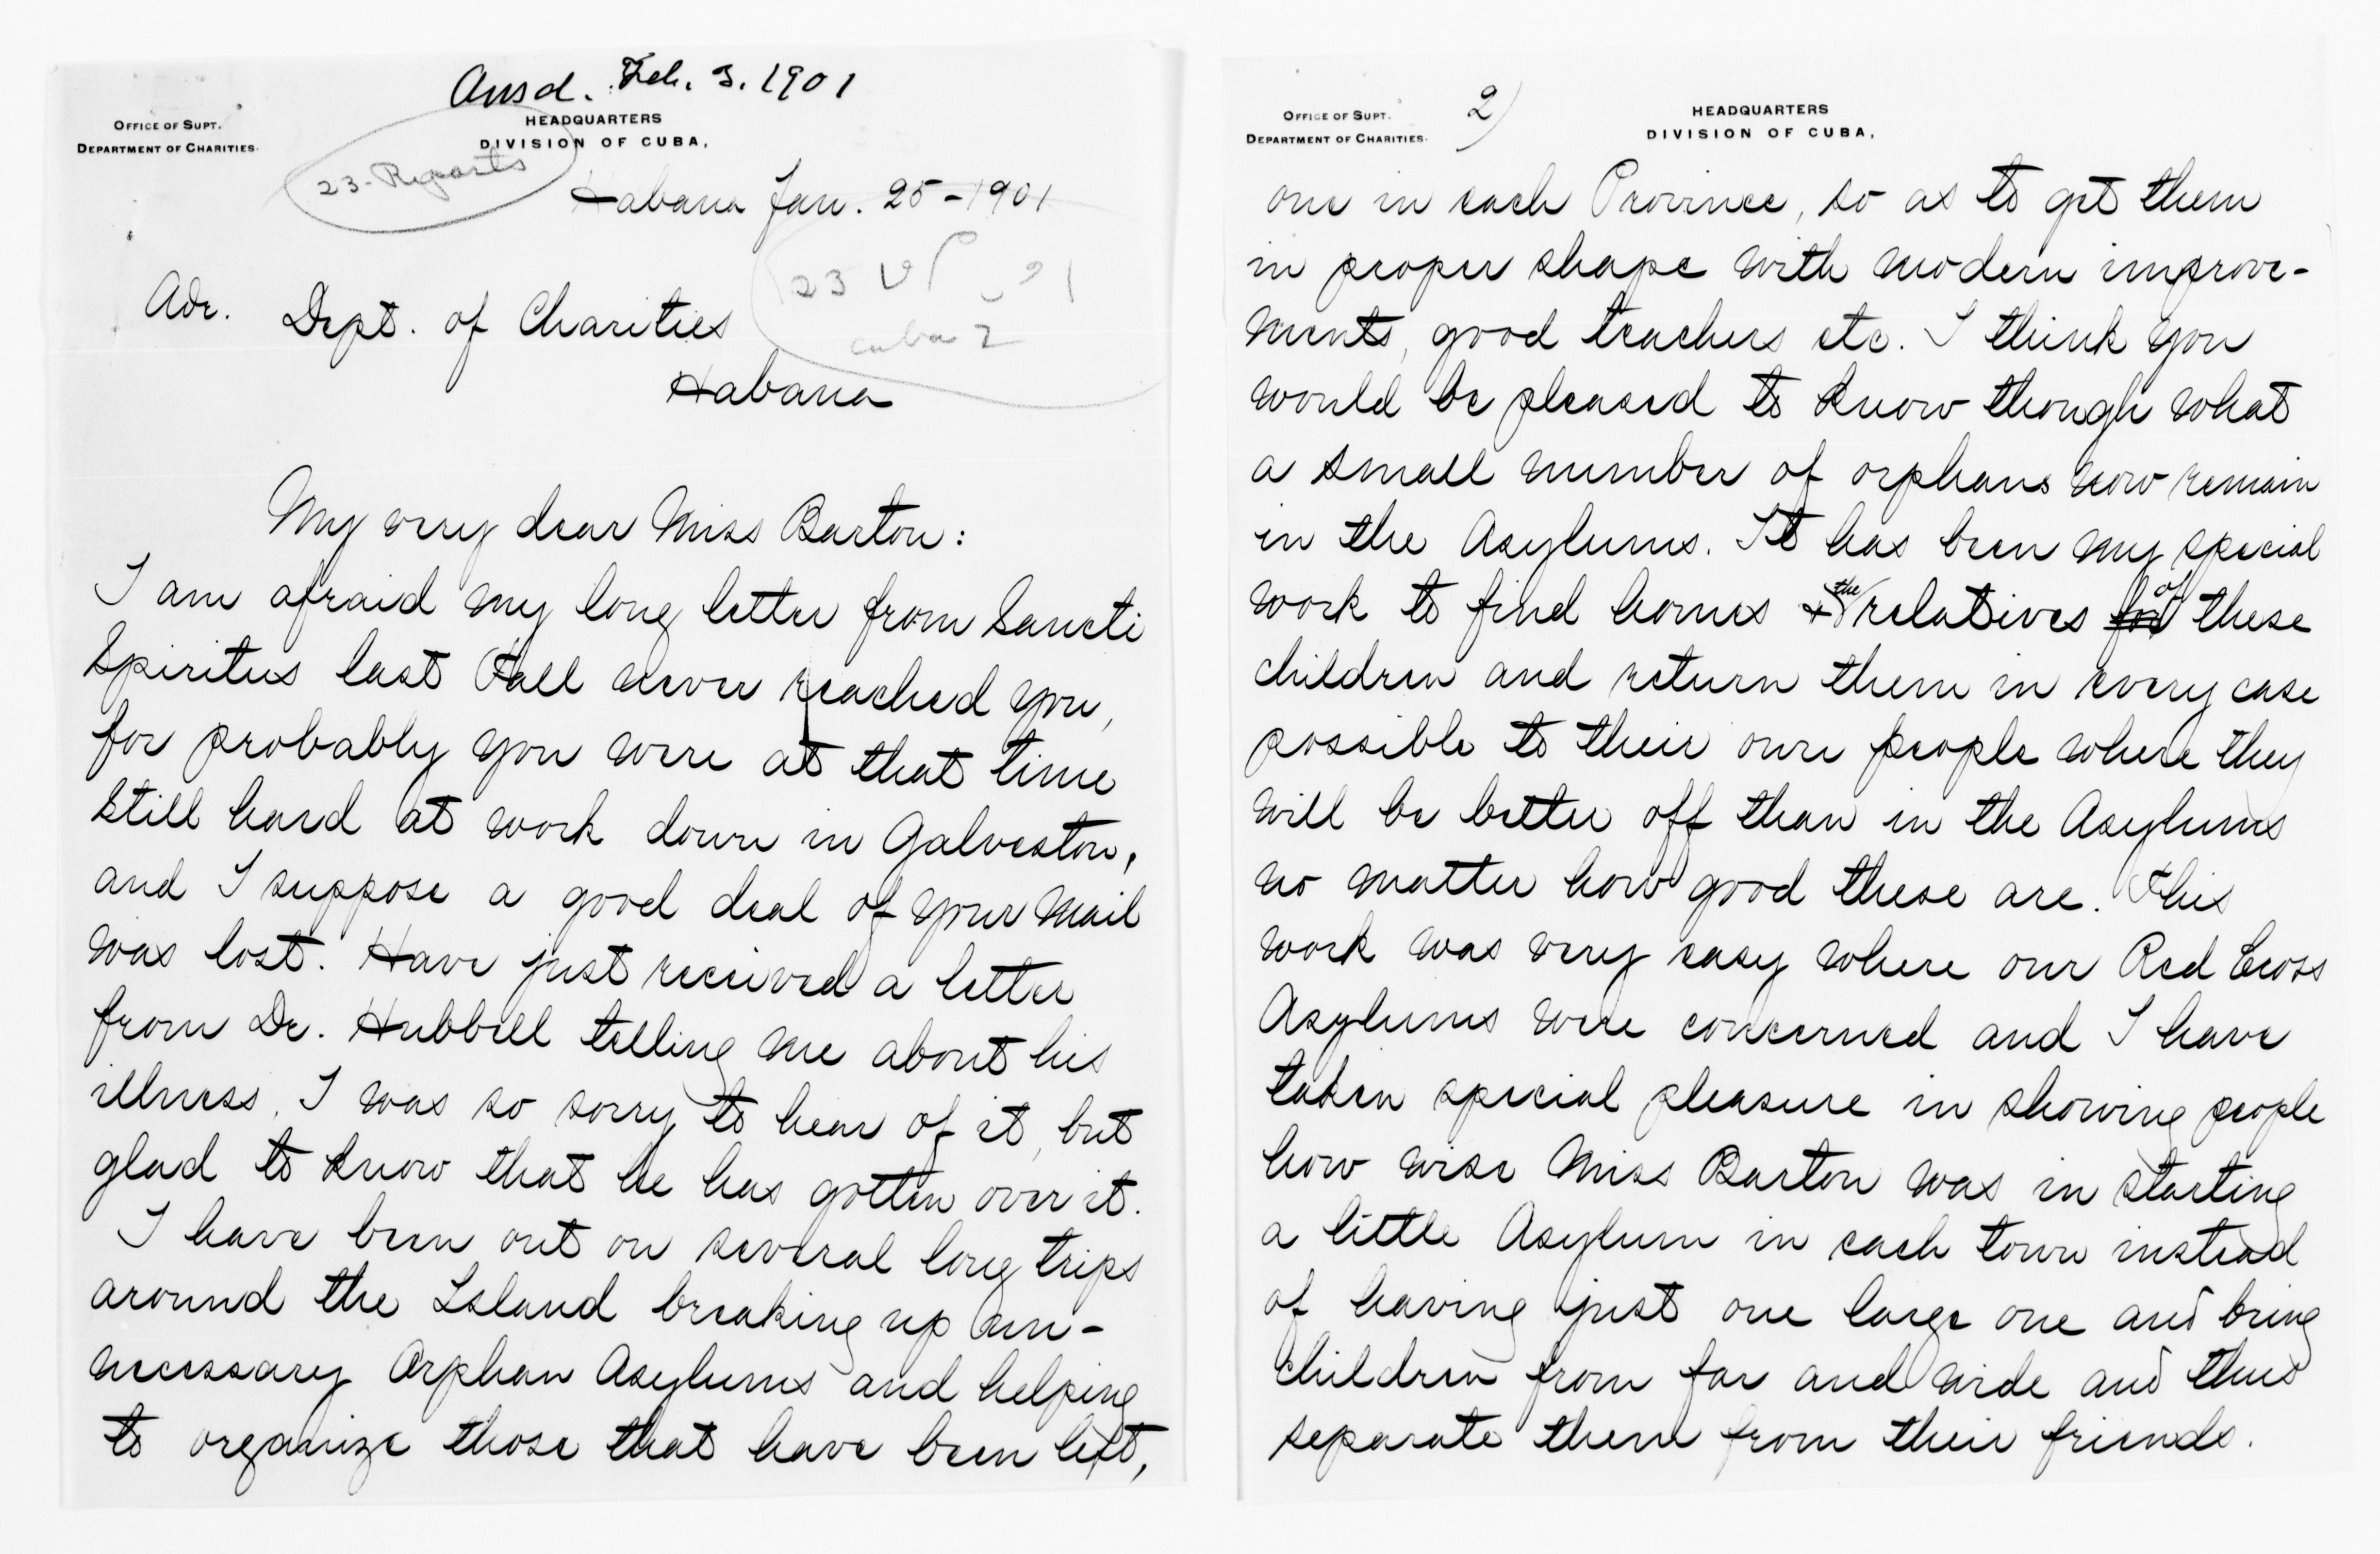 Ansd. Feb. 3. 1901
OFFICE OF SUPT.
DEPARTMENT OF CHARITIES.
HEADQUARTERS
DIVISION OF CUBA,
23-Reports
Habana Jan. 25-1901
23
cuba 2
Adr. Dept. of Charities
Habana
My very dear Miss Barton:
I am afraid my long letter from Sancti
Spiritus last Fall never reached you,
for probably you were at that time
still hard at work down in Galveston,
and I suppose a good deal of your mail
was lost. Have just received a letter
from Dr. Hubbell telling me about his
illness. I was so sorry to hear of it, but
glad to know that he has gotten over it.
I have been out on several long trips
around the Island breaking up un-
necessary Orphan Asylums and helping
to organize those that have been left,
OFFICE OF SUPT.
DEPARTMENT OF CHARITIES.
2)
HEADQUARTERS
DIVISION OF CUBA,
one in each Province, so as to get them
in proper shape with modern improve-
ments, good teachers etc. I think you
would be pleased to know though what
a small number of orphans now remain
in the Asylums. It has been my special
work to find homes + the relatives for of these
children and return them in every case
possible to their own people where they
will be better off than in the Asylums
no matter how good these are. This
work was very easy where our Red Cross
Asylums were concerned and I have
taken special pleasure in showing people
how wise Miss Barton was in starting
a little Asylum in each town instead
of having just one large one and bring
children from far and wide and thus
separate them from their friends.